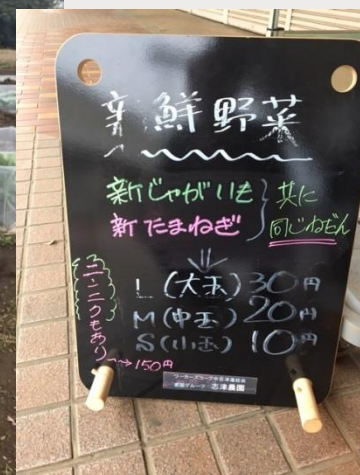 新鮮野菜
新じゃがいも
新たまねぎ
共に
同じねだん
L(大玉)30円
M(中玉)20円
S(小玉)10円
ニンニクもあり
→150円
志津農園